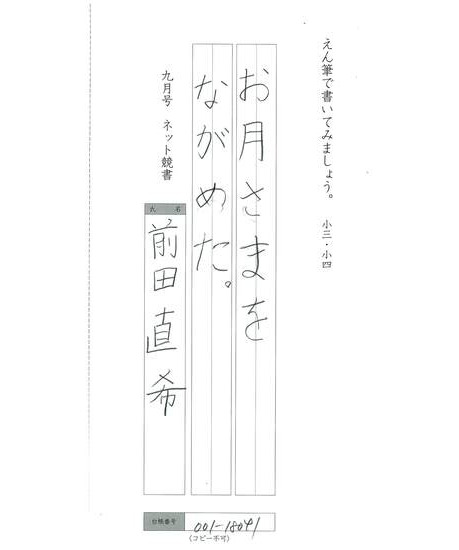 えん筆で書いてみましょう。 小三・小四
お月さまを
ながめた。
九月号 ネット競書
氏 名
前田直希
台帳番号 001-18091
(コピー不可)